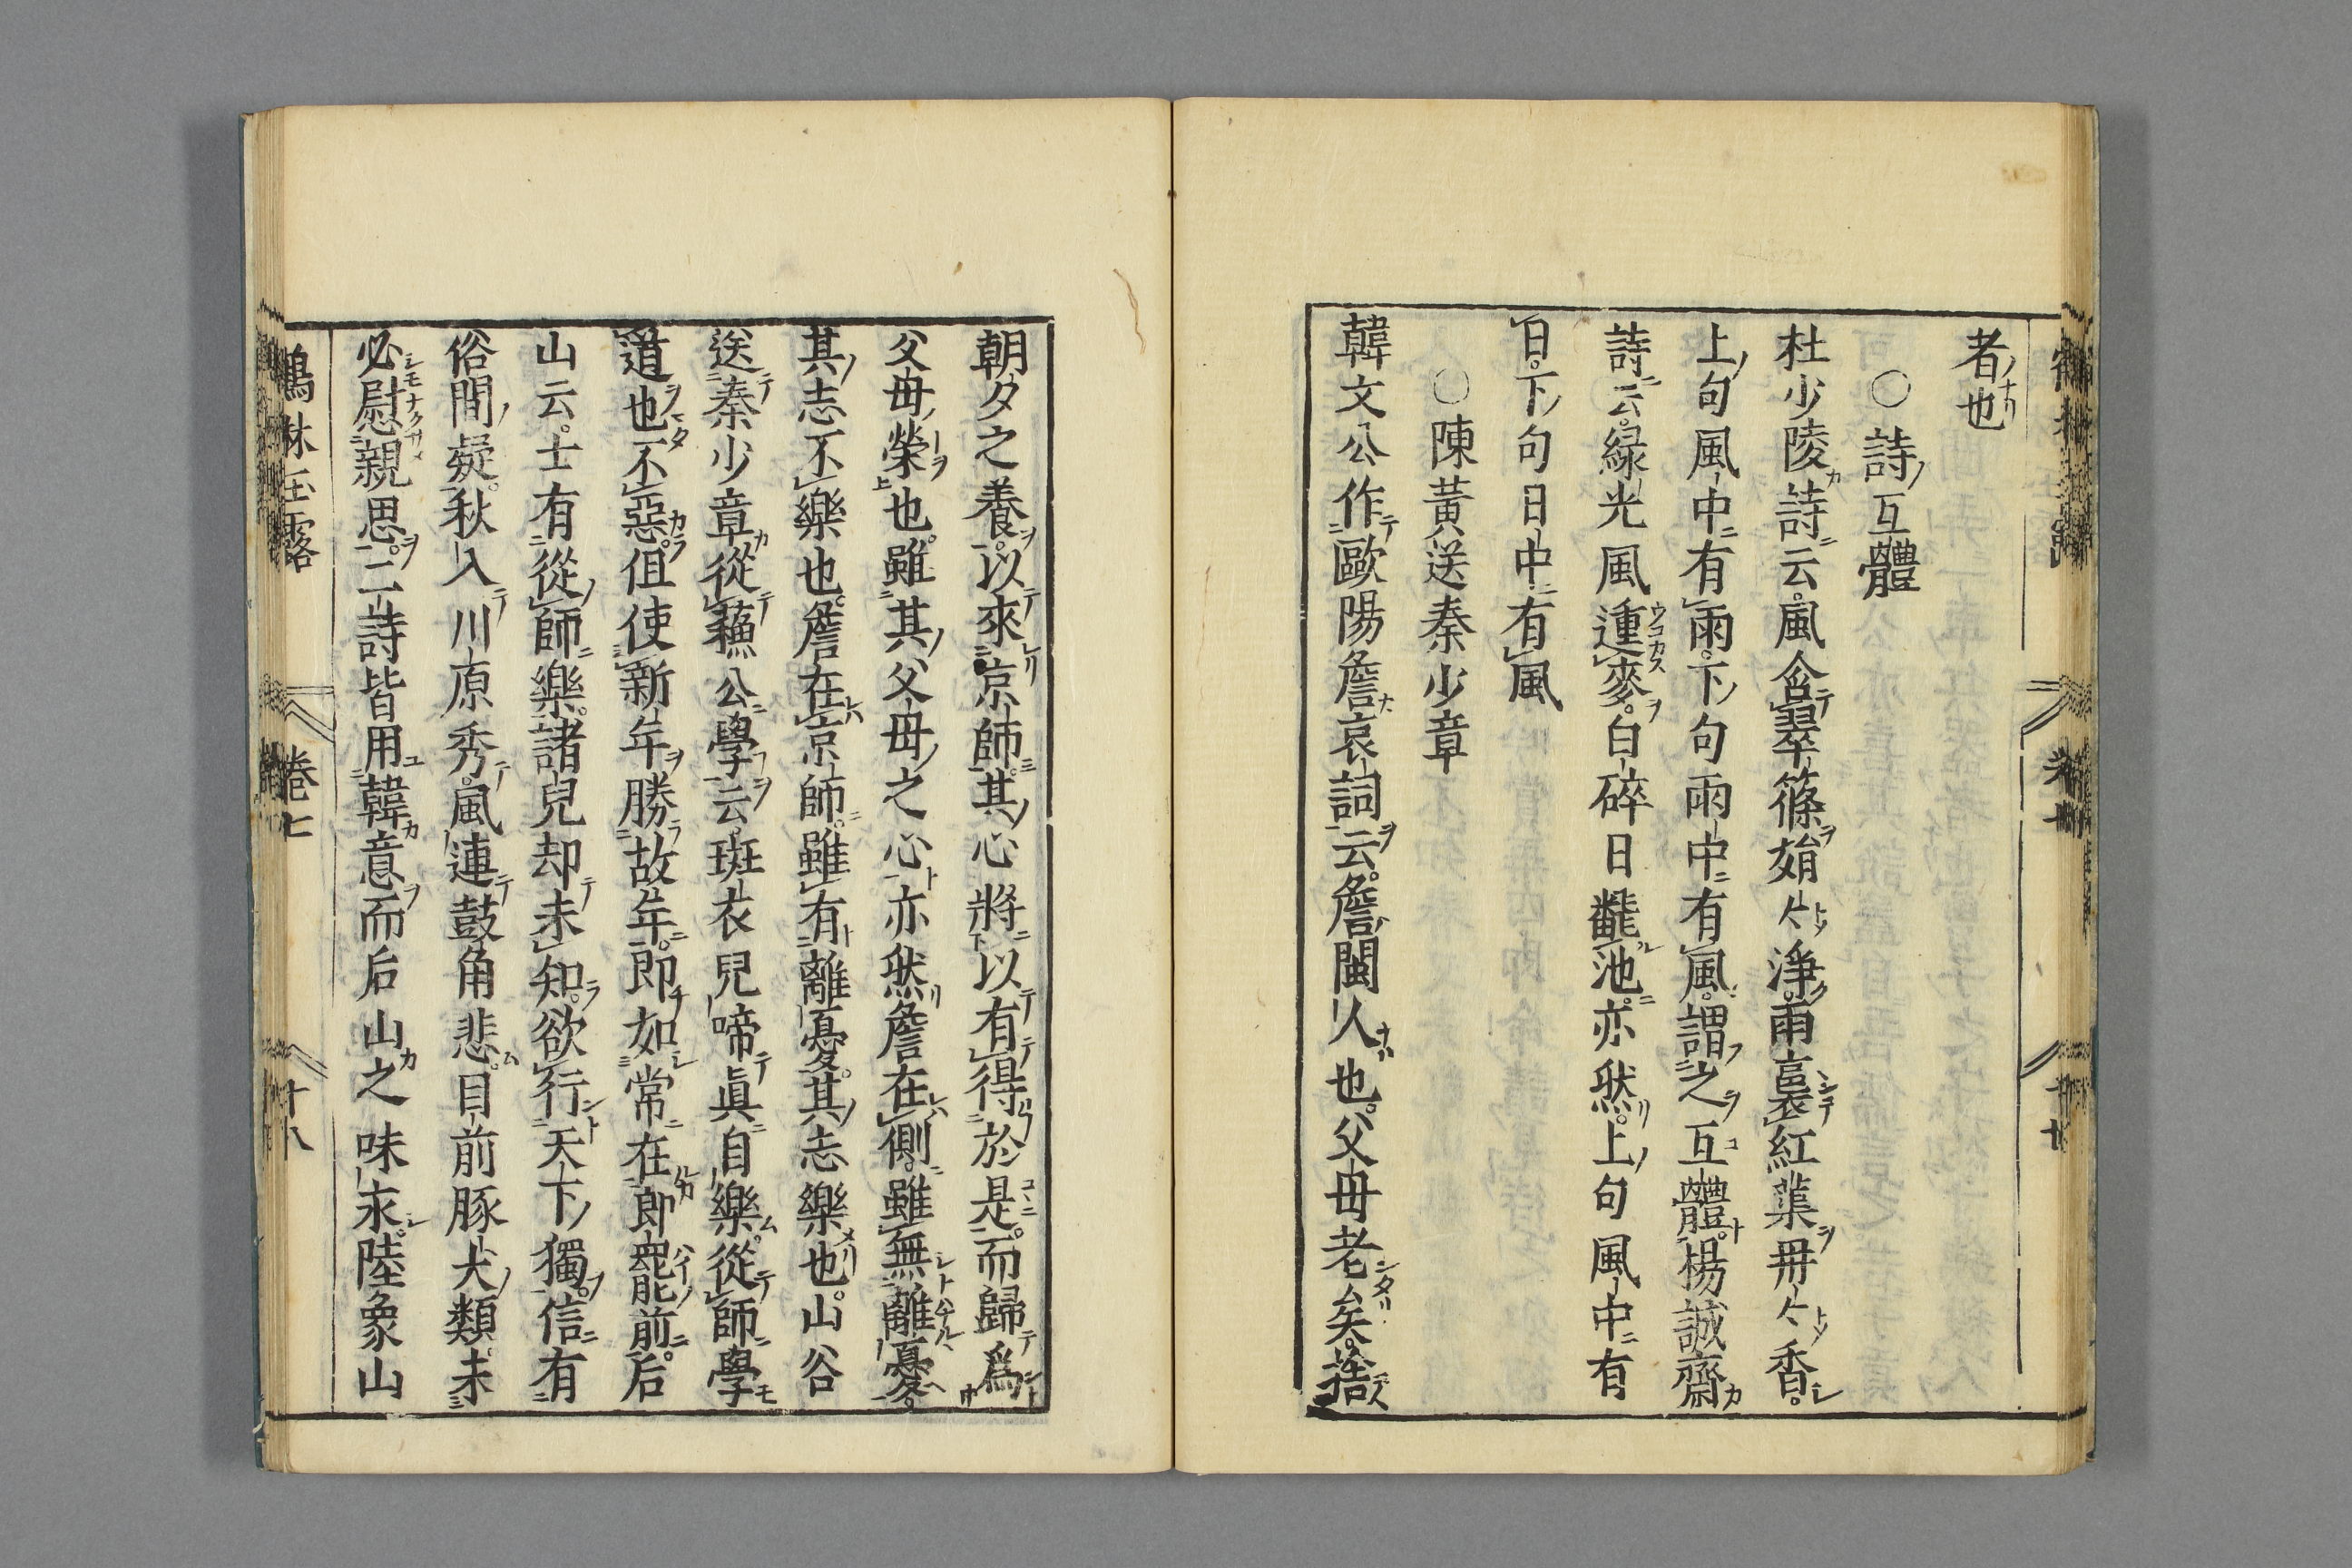 者也
○詩互體
杜少陵詩云風含翠篠娟〻淨雨裛紅蕖冉〻香
上句風中有雨下句雨中有風謂之互體楊誠齋
詩云綠光風動麥白碎日翻池亦然上句風中有
日下句日中有風
○陳黃送秦少章
韓文公作歐陽詹哀詞云詹閩人也父母老矣捨
朝夕之養以來京師其心將以有得於是而歸爲
父母榮也雖其父母之心亦然詹在側雖無離憂
其志不樂也詹在京師雖有離憂其志樂也山谷
送秦少章從蘇公學云斑衣兒啼眞自樂從師學
道也不惡但使新年勝故年即如常在郎罷前后
山云士有從師樂諸兒却未知欲行天下獨信有
俗間疑秋入川原秀風連鼓角悲目前豚犬類未
必慰親思二詩皆用韓意而后山之味永陸象山
鶴林玉露 卷七 十八